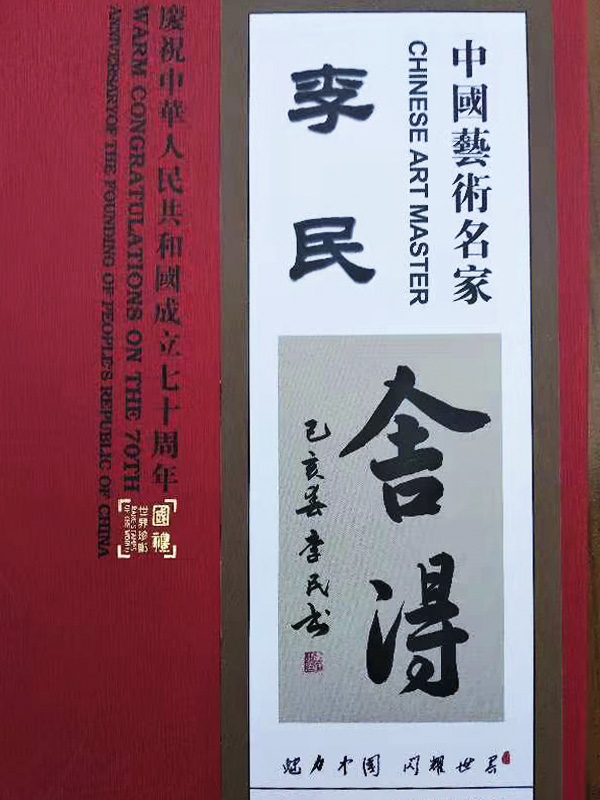 慶祝中華人民共和國成立七十周年
WARM CONGRATULATIONS ON THE 70TH
ANNIVERSARYOF THE FOUNDING OF PEOPLE'S REPUBLIC OF CHINA
國禮
世界珍郵
RARE STAMPS
OF THE WORLD
中國藝術名家
CHINESE ART MASTER
李民
舍得
己亥春李民书
魅力中国 闪耀世界